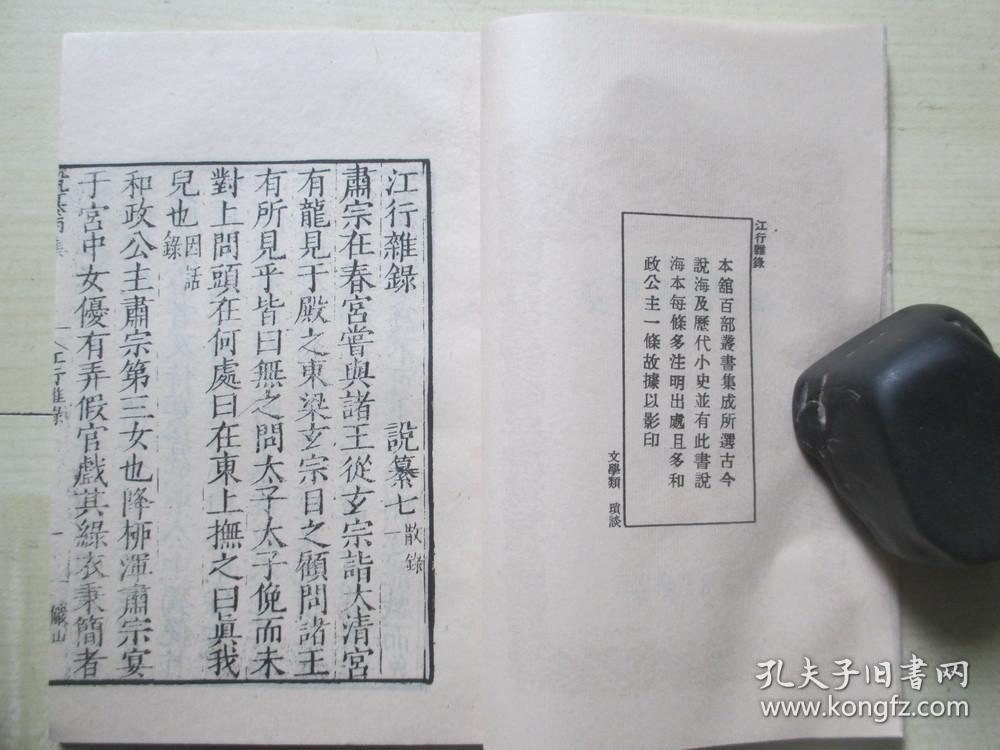 江行雜錄
本館百部叢書集成所選古今
說海及歷代小史並有此書說
海本每條多注明出處且多和
政公主一條故據以影印
文學類 瑣談
江行雜錄 說纂七 散錄
肅宗在春宮嘗與諸王從玄宗詣太清宮
有龍見于殿之東梁玄宗目之顧問諸王
有所見乎皆曰無之問太子太子俛而未
對上問頭在何處曰在東上撫之曰眞我
兒也 因話錄
和政公主肅宗第三女也降柳渾肅宗宴
于宮中女優有弄假官戲其綠衣秉簡者
江行雜錄
一
儼山
孔夫子旧书网
www.kongfz.com